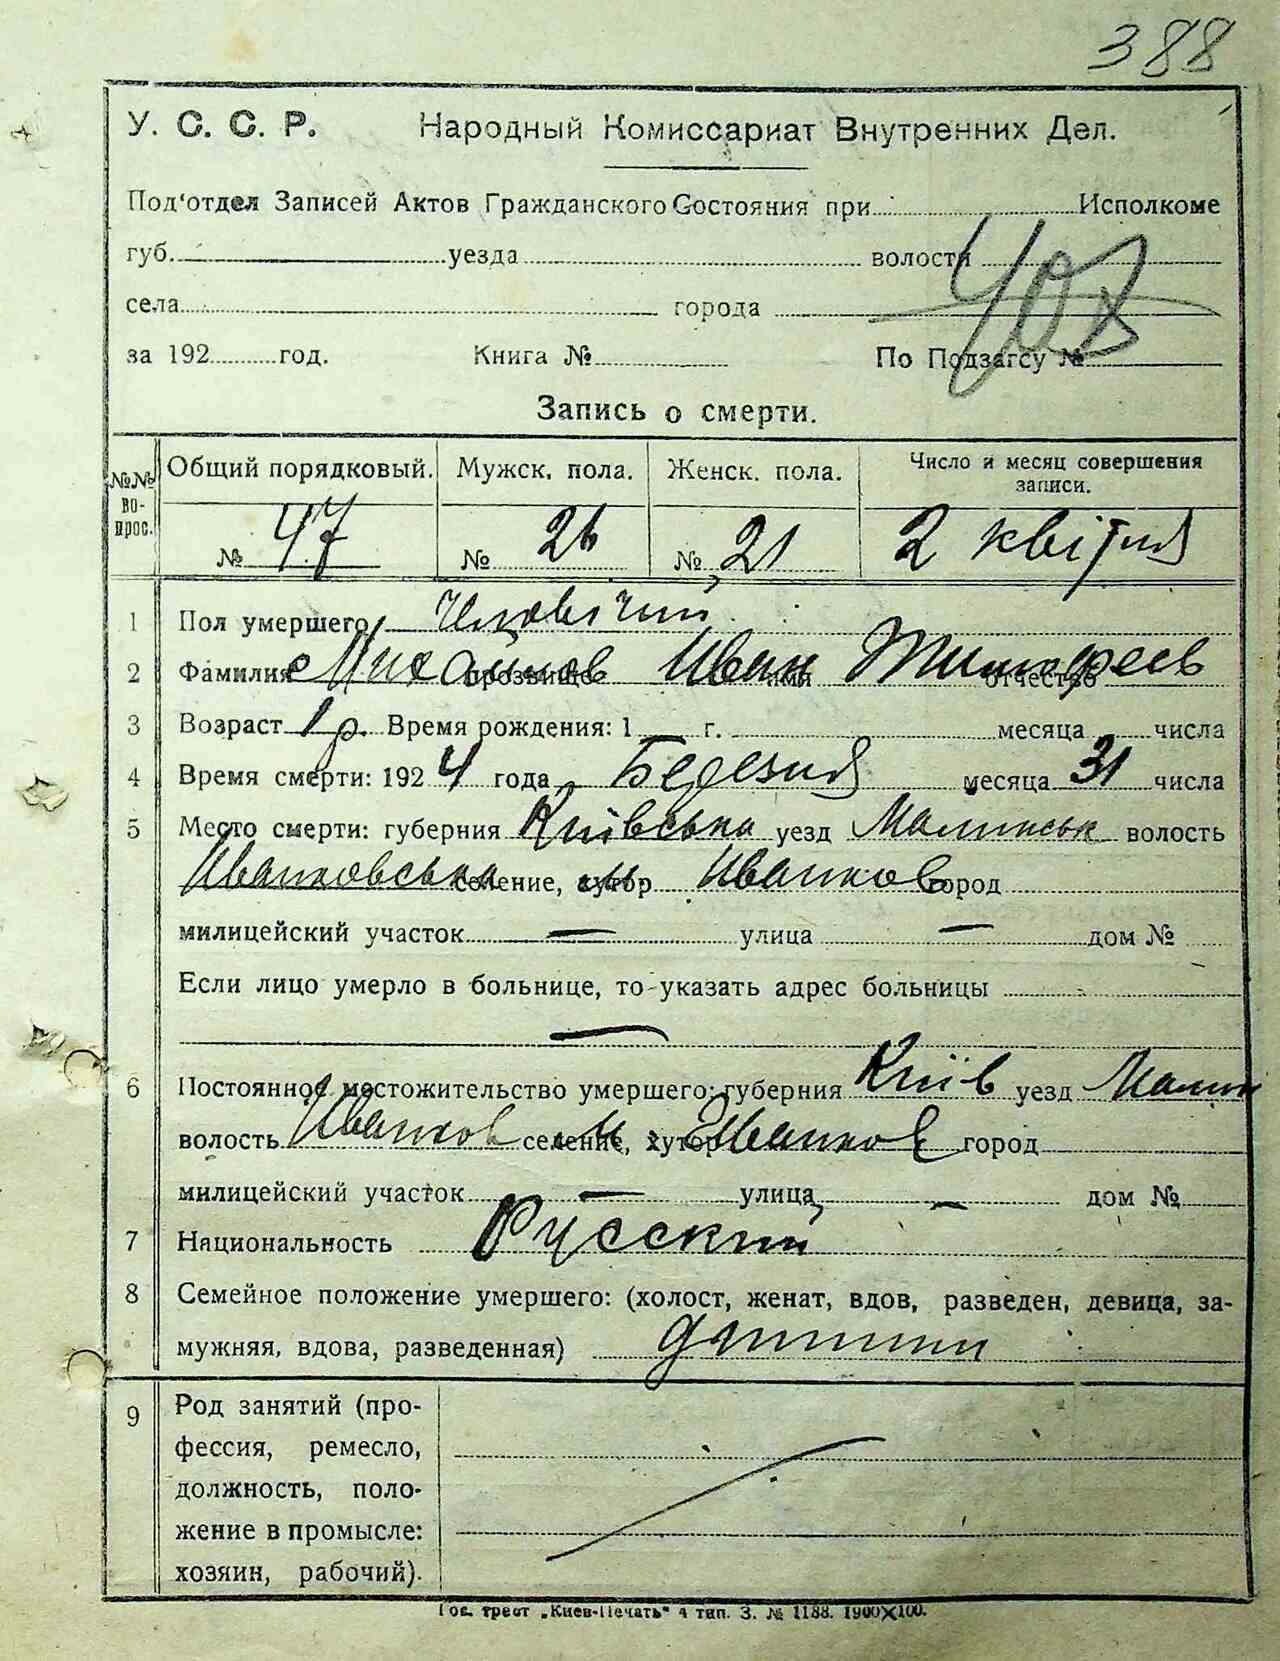 388
У. С. С. Р. Народный Комиссариат Внутренних Дел.
Под'отдел Записей Актов Гражданского Состояния при Исполкоме
губ. уезда волости
села города
408
за 192 год. Книга № По Подзагсу №
Запись о смерти.
№№ во- прос. Общий порядковый. Мужск. пола. Женск. пола. Число и месяц совершения записи.
№ 47 № 26 № 21 2 квітня
1 Пол умершего Чоловічий
2 Фамилия прозвище Михайлов имя Иван отчество Тимофеев
3 Возраст 1 р. Время рождения: 1 — г. месяца числа
4 Время смерти: 1924 года Березня месяца 31 числа
5 Место смерти: губерния Київська уезд Малинськ волость
Иванковська селение, хутор м. Иванков город
милицейский участок — улица — дом №
Если лицо умерло в больнице, то указать адрес больницы
—
6 Постоянное местожительство умершего: губерния Київ уезд Малин
волость Иванков селение, хутор м Иванков город
милицейский участок — улица — дом №
7 Национальность Русский
8 Семейное положение умершего: (холост, женат, вдов, разведен, девица, за-
мужняя, вдова, разведенная) дитина
9 Род занятий (про-
фессия, ремесло,
должность, поло-
жение в промысле:
хозяин, рабочий).
Гос. трест „Киев-Печать“ 4 тип. З. № 1188. 1900×100.